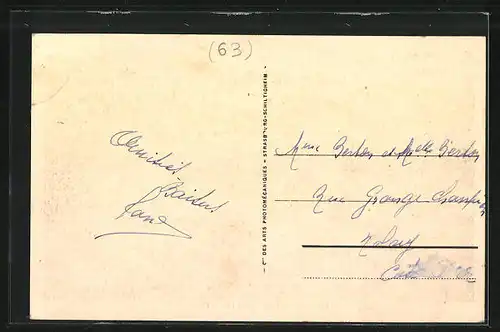 (63)
Amitiés
Baisers
Cie DES ARTS PHOTOMÉCANIQUES - STRASBOURG-SCHILTIGHEIM -
Mme Berton et Melle Berton
Rue Grange Champion
Nolay